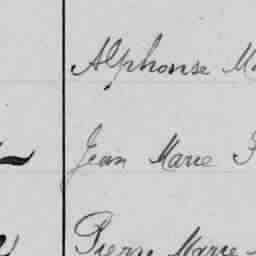 Alphonse
Jean Marie
Pierre Marie